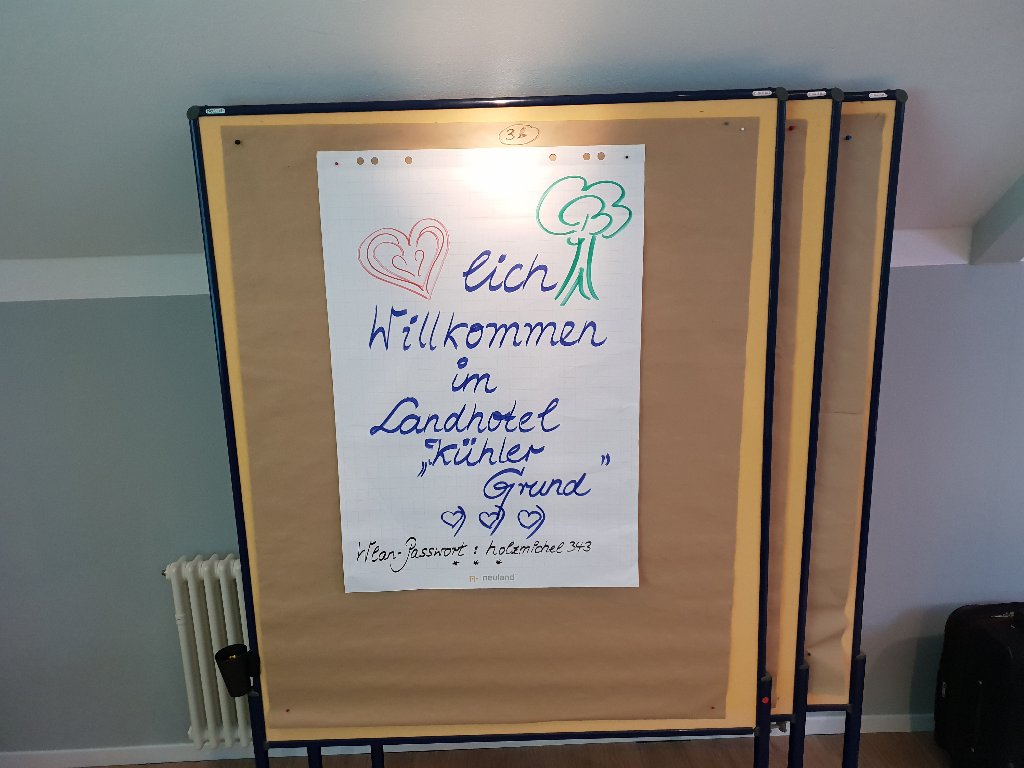 lich
Willkommen
im
Landhotel
„Kühler
Grund”
Wlan-Passwort : holzmichel 343
neuland